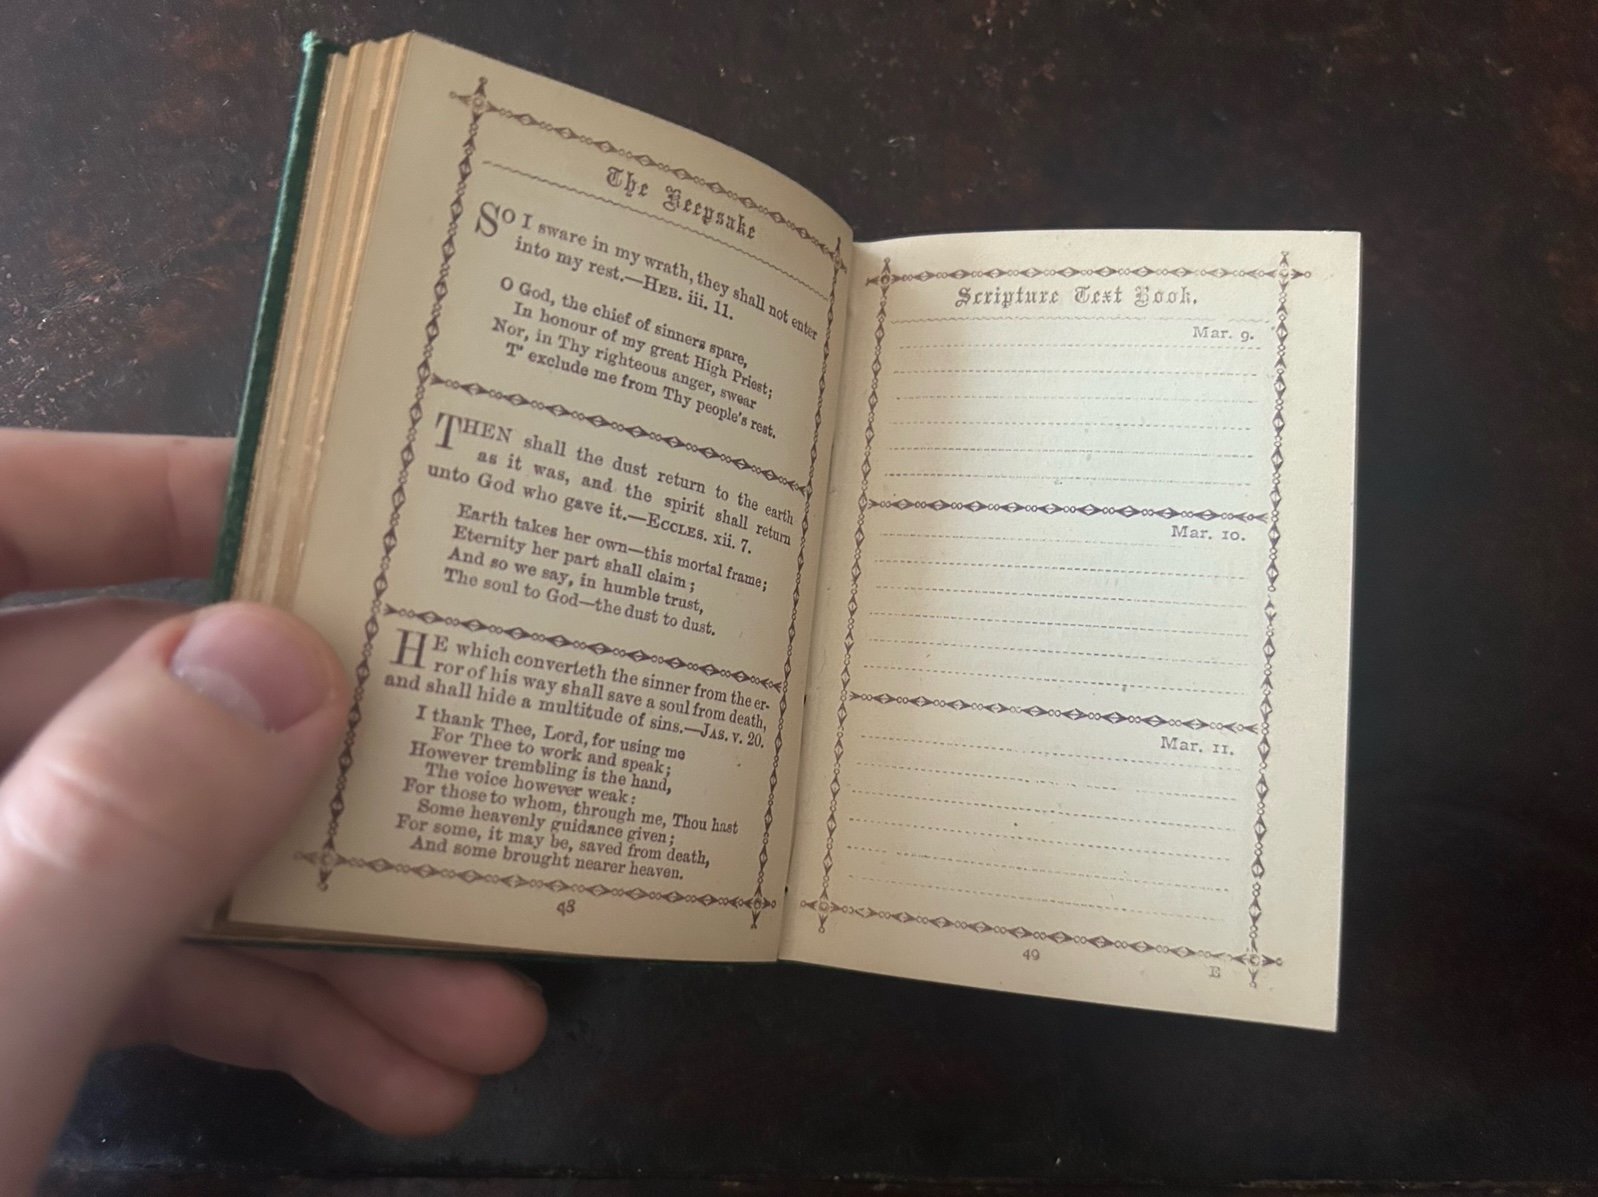 The Keepsake
SO I sware in my wrath, they shall not enter
into my rest.—HEB. iii. 11.
O God, the chief of sinners spare,
In honour of my great High Priest;
Nor, in Thy righteous anger, swear
T' exclude me from Thy people's rest.
THEN shall the dust return to the earth
as it was, and the spirit shall return
unto God who gave it.—ECCLES. xii. 7.
Earth takes her own—this mortal frame;
Eternity her part shall claim;
And so we say, in humble trust,
The soul to God—the dust to dust.
HE which converteth the sinner from the er-
ror of his way shall save a soul from death,
and shall hide a multitude of sins.—JAS. v. 20.
I thank Thee, Lord, for using me
For Thee to work and speak;
However trembling is the hand,
The voice however weak:
For those to whom, through me, Thou hast
Some heavenly guidance given;
For some, it may be, saved from death,
And some brought nearer heaven.
48
Scripture Text Book.
Mar. 9.
Mar. 10.
Mar. 11.
49
E